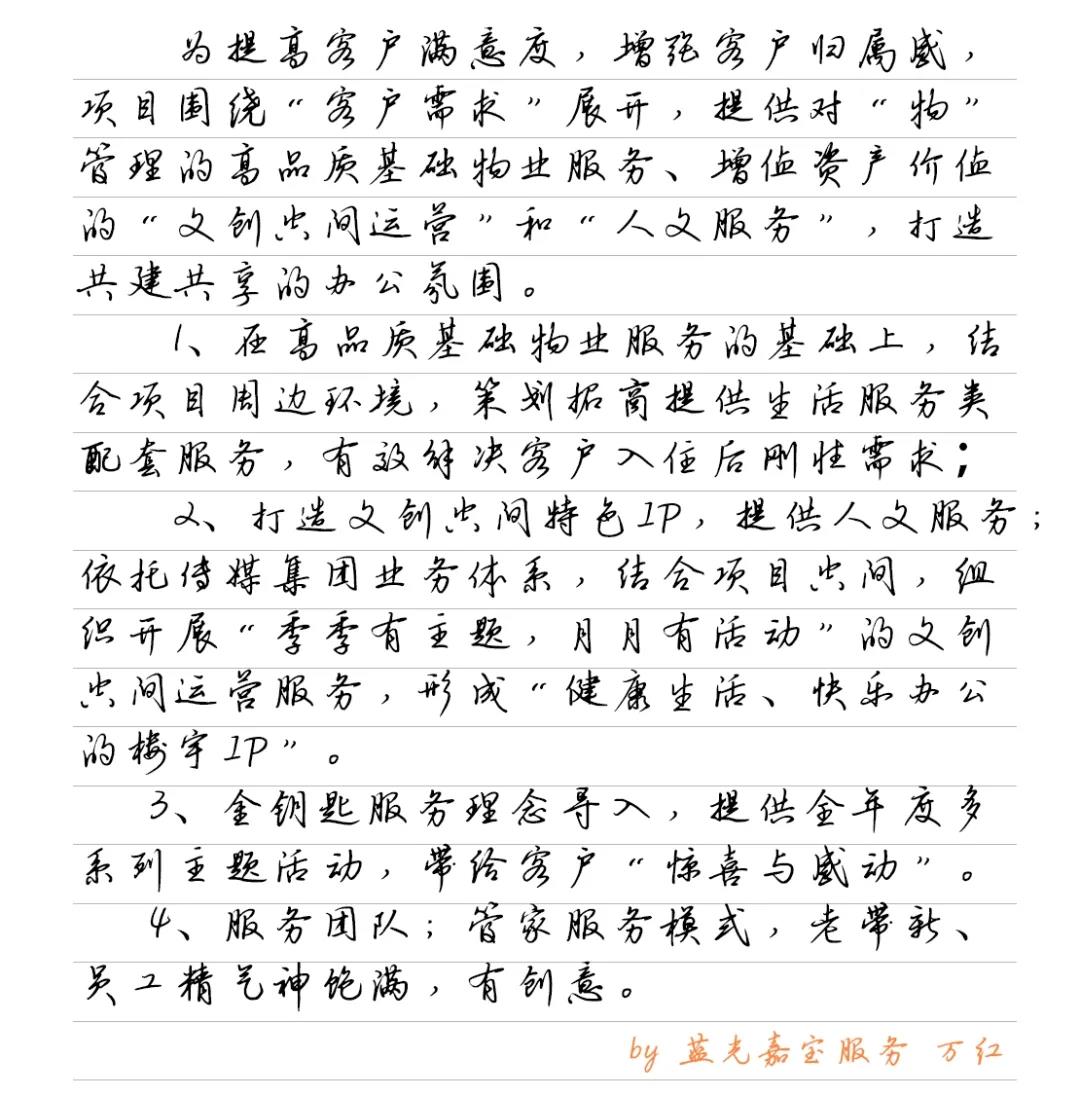 为提高客户满意度，增强客户归属感，
项目围绕“客户需求”展开，提供对“物”
管理的高品质基础物业服务、增值资产价值
的“文创空间运营”和“人文服务”，打造
共建共享的办公氛围。
1、在高品质基础物业服务的基础上，结
合项目周边环境，策划招商提供生活服务类
配套服务，有效解决客户入住后刚性需求；
2、打造文创空间特色IP，提供人文服务；
依托传媒集团业务体系，结合项目空间，组
织开展“季季有主题，月月有活动”的文创
空间运营服务，形成“健康生活、快乐办公
的楼宇IP”。
3、金钥匙服务理念导入，提供全年度多
系列主题活动，带给客户“惊喜与感动”。
4、服务团队；管家服务模式，老带新、
员工精气神饱满，有创意。
by 蓝光嘉宝服务 万红